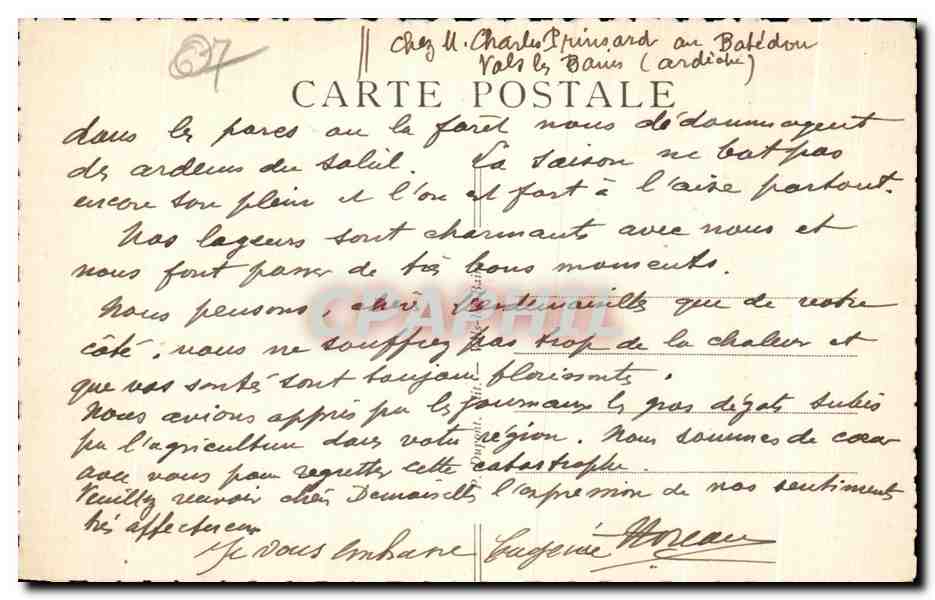 637
chez M. Charles Prinsard au Batédou
Vals les Bains (ardèche)
CARTE POSTALE
dans les parcs ou la forêt nous dédommagent
des ardeurs du soleil. La saison ne bat pas
encore son plein et l'on est fort à l'aise partout.
Nos logeurs sont charmants avec nous et
nous font passer de très bons moments.
Nous pensons, chères Mesdemoiselles que de votre
côté, vous ne souffrez pas trop de la chaleur et
que vos santés sont toujours florissantes.
Nous avions appris par les journaux les gros dégâts subis
par l'agriculture dans votre région. Nous sommes de cœur
avec vous pour regretter cette catastrophe.
Veuillez recevoir chères Demoiselles l'expression de nos sentiments
très affectueux
Je vous embrasse Eugénie Moreau
Dupont, édit.
CPAPHIL